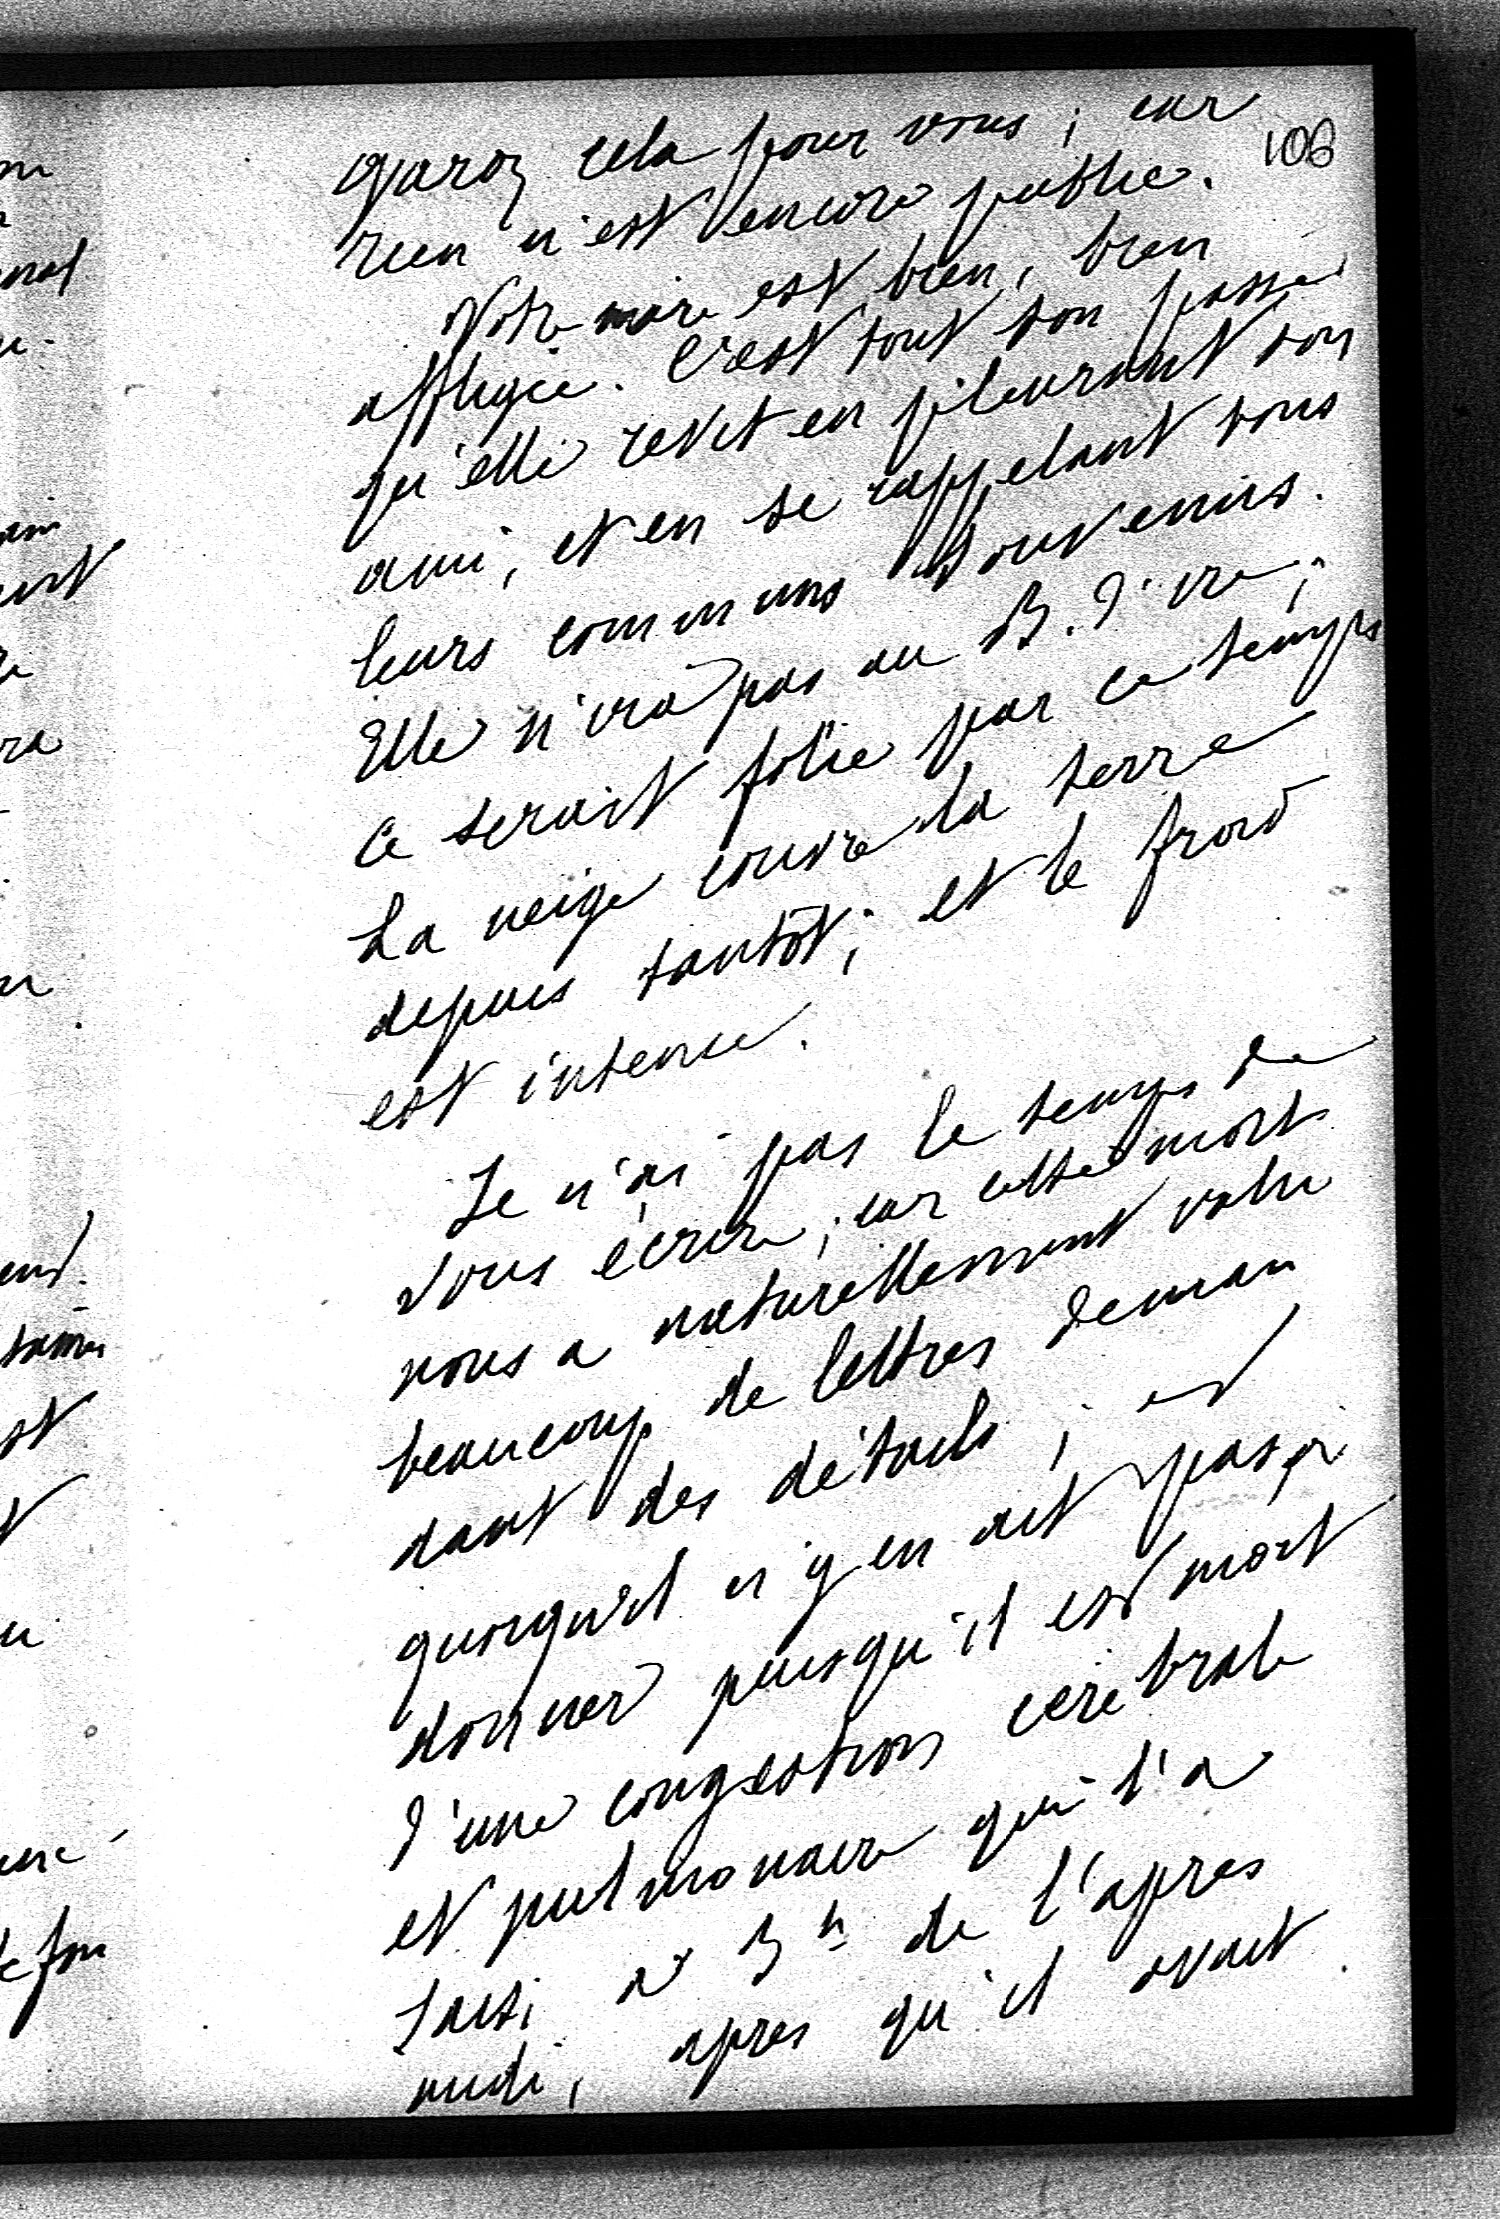 108
gardez cela pour vous ; car
rien n'est encore public.
Votre mère est bien, bien
affligée. C'est tout son passé
qu'elle revit en pleurant son
ami, et en se rappelant tous
leurs communs souvenirs.
Elle n'ira pas au B. d'Ire ;
ce serait folie par ce temps
La neige couvre la terre
depuis tantôt ; et le froid
est intense.
Je n'ai pas le temps de
vous écrire ; car cette mort
nous a naturellement valu
beaucoup de lettres deman
dant des détails ; et
quoiqu'il n'y en ait pas à
donner puisqu'il est mort
d'une congestion cérébrale
et pulmonaire qui l'a
saisi à 3h de l'après
midi, après qu'il avait